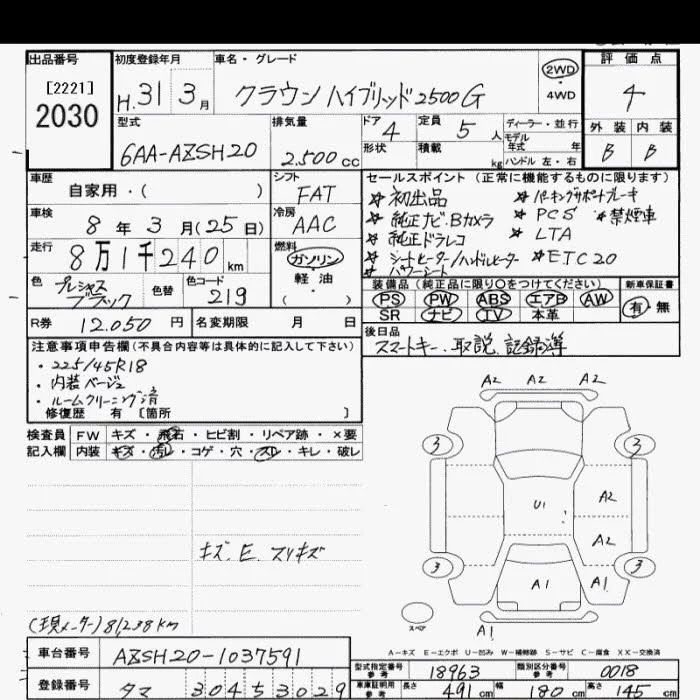 出品番号
[2221]
2030
初度登録年月
H.31 3月
車名・グレード
クラウン ハイブリッド2500G
2WD
4WD
評価点
4
外装 内装
B B
型式
6AA-AZSH20
排気量
2.500cc
ドア
4
定員
5人
形状
積載
kg
ディーラー・並行
モデル
年式 年
ハンドル 左・右
車歴
自家用・( )
シフト
FAT
車検
8年3月(25日)
冷房
AAC
走行
8万1千240km
燃料
ガソリン
軽油
( )
色
プレシャス
ブラック
色替
色コード
219
R券 12.050円
名変期限 月 日
セールスポイント (正常に機能するものに限ります)
☆ 初出品
☆ パーキングサポートブレーキ
☆ 純正ナビ.Bカメラ
☆ PCS
☆ 禁煙車
☆ 純正ドラレコ
☆ LTA
☆ シートヒーター/ハンドルヒーター
☆ ETC20
☆ パワーシート
装備品 (純正品に限り○をつけてください)
新車保証書
PS PW ABS エアB AW
有・無
SR ナビ TV 本革
後日品
スマートキー.取説.記録簿
注意事項申告欄(不具合内容等は具体的に記入して下さい)
・225/45R18
・内装ベージュ
・ルームクリーニング済
修復歴 有 〔箇所 〕
検査員
記入欄
FW キズ・飛石・ヒビ割・リペア跡・×要
内装 キズ・汚レ・コゲ・穴・スレ・キレ・破レ
キズ.E.スリキズ
(現メーター)81,238km
A2 A2 A2
3 3
U1
A2
A2
3 3
A1
A1
スペア
A1
A-キズ E-エクボ U-凹み W-補修跡 S-サビ C-腐食 XX-交換済
車台番号
AZSH20-1037591
登録番号
タマ 304 5 3029
型式指定番号
参考
18963
類別区分番号
参考
0018
車庫証明用
参考
長さ
491cm
幅
180cm
高さ
145cm